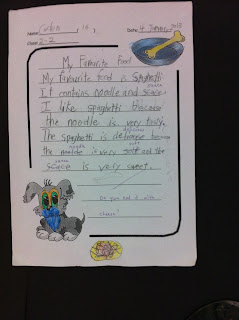 Name
Date: 4 January
Class 2-2
My Favourite Food
My favourite food is Spaghetti
It contains noodle and sace
sauce
I like spaghetti because
the noodle is very tasty.
The spaghetti is because
the is very soft and the
sauce
sace is very sweet.
Do you eat it with
cheese?